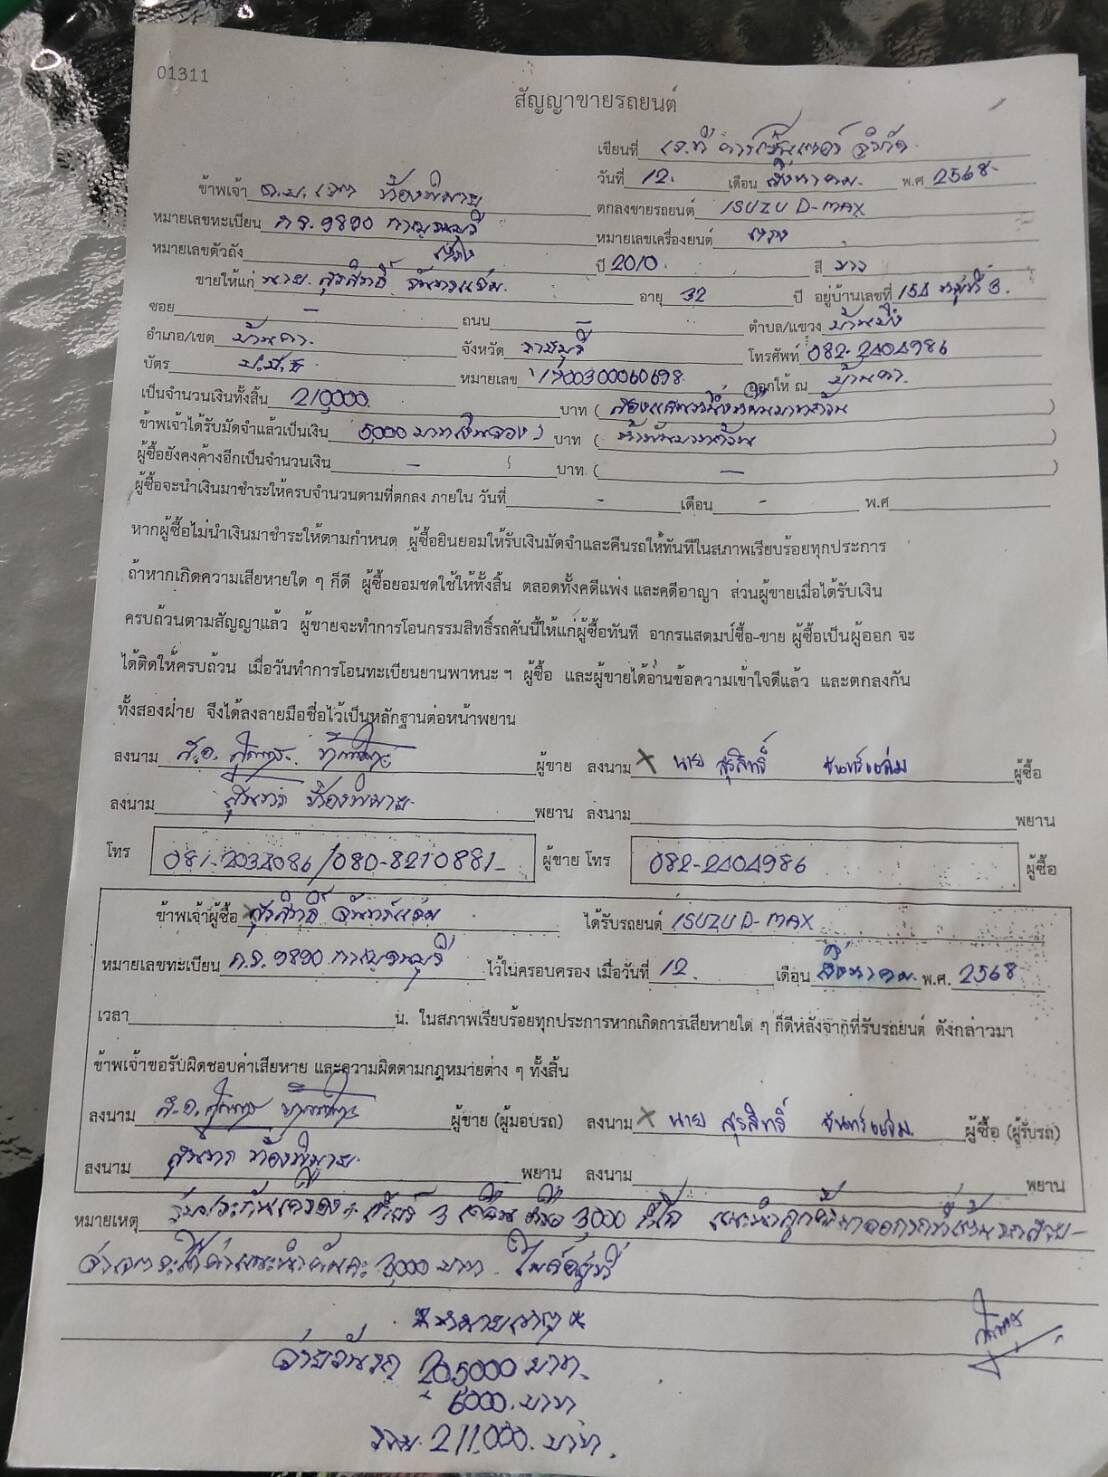 01311
สัญญาขายรถยนต์
เขียนที่ จำกัด
ข้าพเจ้า วันที่ 12. เดือน สิงหาคม. พ.ศ 2568
หมายเลขทะเบียน 9890 กาญจนบุรี ตกลงขายรถยนต์ ISUZU D-MAX
หมายเลขตัวถัง หมายเลขเครื่องยนต์
ปี 2010. สี
ขายให้แก่ นาย สุรสิทธิ์ จันทร์แจ่ม. อายุ 32 ปี อยู่บ้านเลขที่ หมู่ที่ 3.
ซอย — ถนน — ตำบล/แขวง บ้านบึง
อำเภอ/เขต บ้านคา. จังหวัด ราชบุรี โทรศัพท์ 082-2404986
บัตร ป.ช.ช หมายเลข 1700300060698 ออกให้ ณ บ้านคา.
เป็นจำนวนเงินทั้งสิ้น 210000 บาท (สองแสนหนึ่งหมื่นบาทถ้วน)
ข้าพเจ้าได้รับมัดจำแล้วเป็นเงิน 5000 บาท (เงินจอง) บาท (ห้าพันบาทถ้วน)
ผู้ซื้อยังคงค้างอีกเป็นจำนวนเงิน — บาท (—)
ผู้ซื้อจะนำเงินมาชำระให้ครบจำนวนตามที่ตกลง ภายใน วันที่ - เดือน - พ.ศ
หากผู้ซื้อไม่นำเงินมาชำระให้ตามกำหนด ผู้ซื้อยินยอมให้รับเงินมัดจำและคืนรถให้ทันทีในสภาพเรียบร้อยทุกประการ
ถ้าหากเกิดความเสียหายใด ๆ ก็ดี ผู้ซื้อยอมชดใช้ให้ทั้งสิ้น ตลอดทั้งคดีแพ่ง และคดีอาญา ส่วนผู้ขายเมื่อได้รับเงิน
ครบถ้วนตามสัญญาแล้ว ผู้ขายจะทำการโอนกรรมสิทธิ์รถคันนี้ให้แก่ผู้ซื้อทันที อากรแสตมป์ซื้อ-ขาย ผู้ซื้อเป็นผู้ออก จะ
ได้ติดให้ครบถ้วน เมื่อวันทำการโอนทะเบียนยานพาหนะ ฯ ผู้ซื้อ และผู้ขายได้อ่านข้อความเข้าใจดีแล้ว และตกลงกัน
ทั้งสองฝ่าย จึงได้ลงลายมือชื่อไว้เป็นหลักฐานต่อหน้าพยาน
ลงนาม ผู้ขาย ลงนาม X นาย สุรสิทธิ์ จันทร์แจ่ม ผู้ซื้อ
ลงนาม พยาน ลงนาม พยาน
โทร 081-2034086/080-8210881- ผู้ขาย โทร 082-2404986 ผู้ซื้อ
ข้าพเจ้าผู้ซื้อ สุรสิทธิ์ จันทร์แจ่ม ได้รับรถยนต์ ISUZU D-MAX
หมายเลขทะเบียน 9890 กาญจนบุรี ไว้ในครอบครอง เมื่อวันที่ 12. เดือน สิงหาคม. พ.ศ. 2568
เวลา น. ในสภาพเรียบร้อยทุกประการหากเกิดการเสียหายใด ๆ ก็ดีหลังจากที่รับรถยนต์ ดังกล่าวมา
ข้าพเจ้าขอรับผิดชอบค่าเสียหาย และความผิดตามกฎหมายต่าง ๆ ทั้งสิ้น
ลงนาม ผู้ขาย (ผู้มอบรถ) ลงนาม X นาย สุรสิทธิ์ จันทร์แจ่ม. ผู้ซื้อ (ผู้รับรถ)
ลงนาม พยาน ลงนาม พยาน
หมายเหตุ รับประกันเครื่อง+เกียร์ 3 เดือน หรือ 3,000 กิโล แนะนำลูกค้า
ค่าแนะนำคันละ 3,000 บาท
จ่ายจำนวน 205000 บาท.
6000. บาท
รวม. 211,000. บาท.